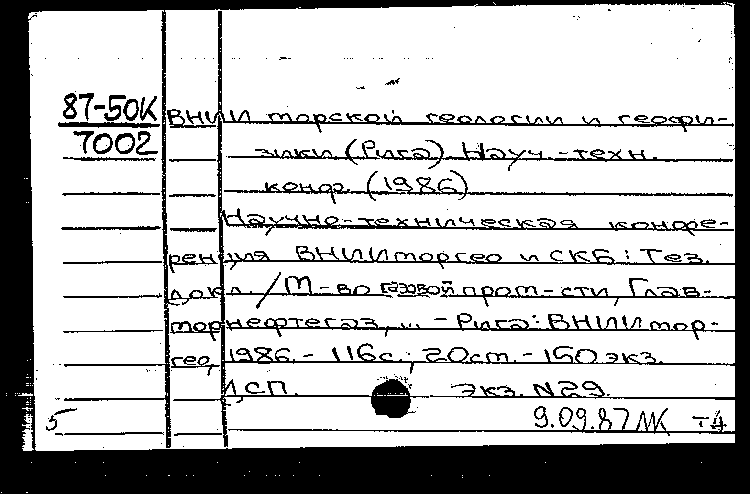 87-50К
7002
ВНИИ морской геологии и геофи-
зики (Рига). Науч.-техн.
конф. (1986)
Научно-техническая конфе-
ренция ВНИИморгео и СКБ: Тез.
докл. / М-во газовой пром-сти, Глав-
морнефтегаз, ... - Рига: ВНИИмор-
гео, 1986. - 116с.; 20см. - 150 экз.
ДСП. экз. N29.
5 9.09.87 МК т4